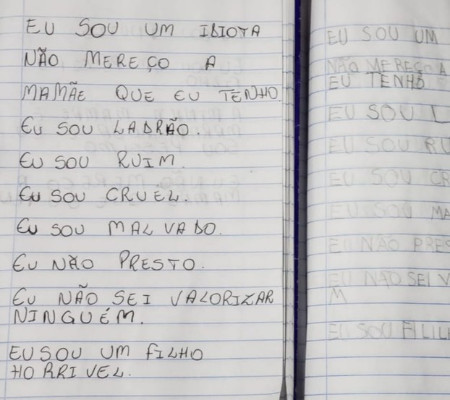 EU SOU UM IDIOTA
NÃO MEREÇO A
MAMÃE QUE EU TENHO
EU SOU LADRÃO.
EU SOU RUIM.
EU SOU CRUEL.
EU SOU MALVADO.
EU NÃO PRESTO.
EU NÃO SEI VALORIZAR
NINGUÉM.
EU SOU UM FILHO
HORRIVEL.
EU SOU UM
NÃO MEREÇO A
EU TENHO
EU SOU L
EU SOU RU
EU SOU CR
EU SOU MA
EU NÃO PRES
EU NÃO SEI V
M
EU SOU FILI